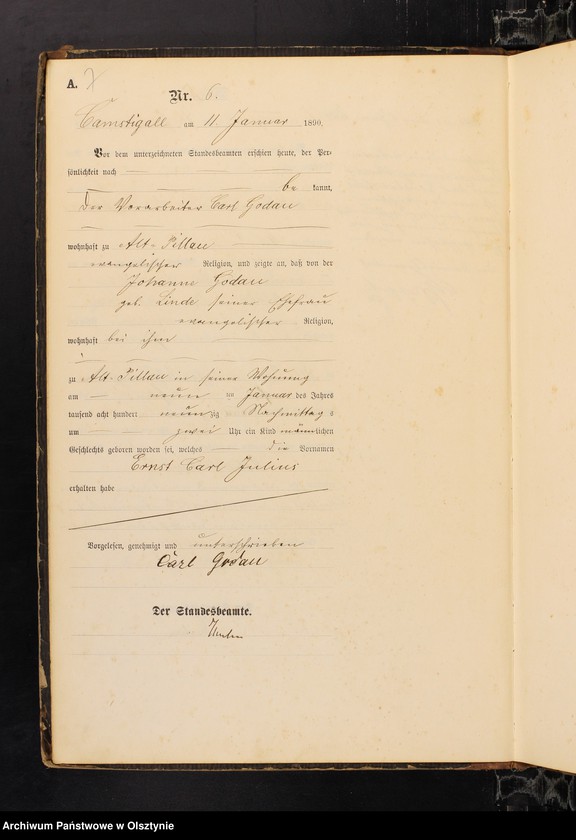 A.
Nr. 6.
Camstigall am 11. Januar 1890.
Vor dem unterzeichneten Standesbeamten erschien heute, der Per-
sönlichkeit nach
be kannt,
der Vorarbeiter Carl Godau
wohnhaft zu Alt-Pillau
evangelischer Religion, und zeigte an, daß von der
Johanne Godau
geb. Linde seiner Ehefrau
evangelischer Religion,
wohnhaft bei ihm
zu Alt-Pillau in seiner Wohnung
am neunten Januar des Jahres
tausend acht hundert neunzig Nachmittags
um zwei Uhr ein Kind männlichen
Geschlechts geboren worden sei, welches die Vornamen
Ernst Carl Julius
erhalten habe
Vorgelesen, genehmigt und unterschrieben
Carl Godau
Der Standesbeamte.
Archiwum Państwowe w Olsztynie